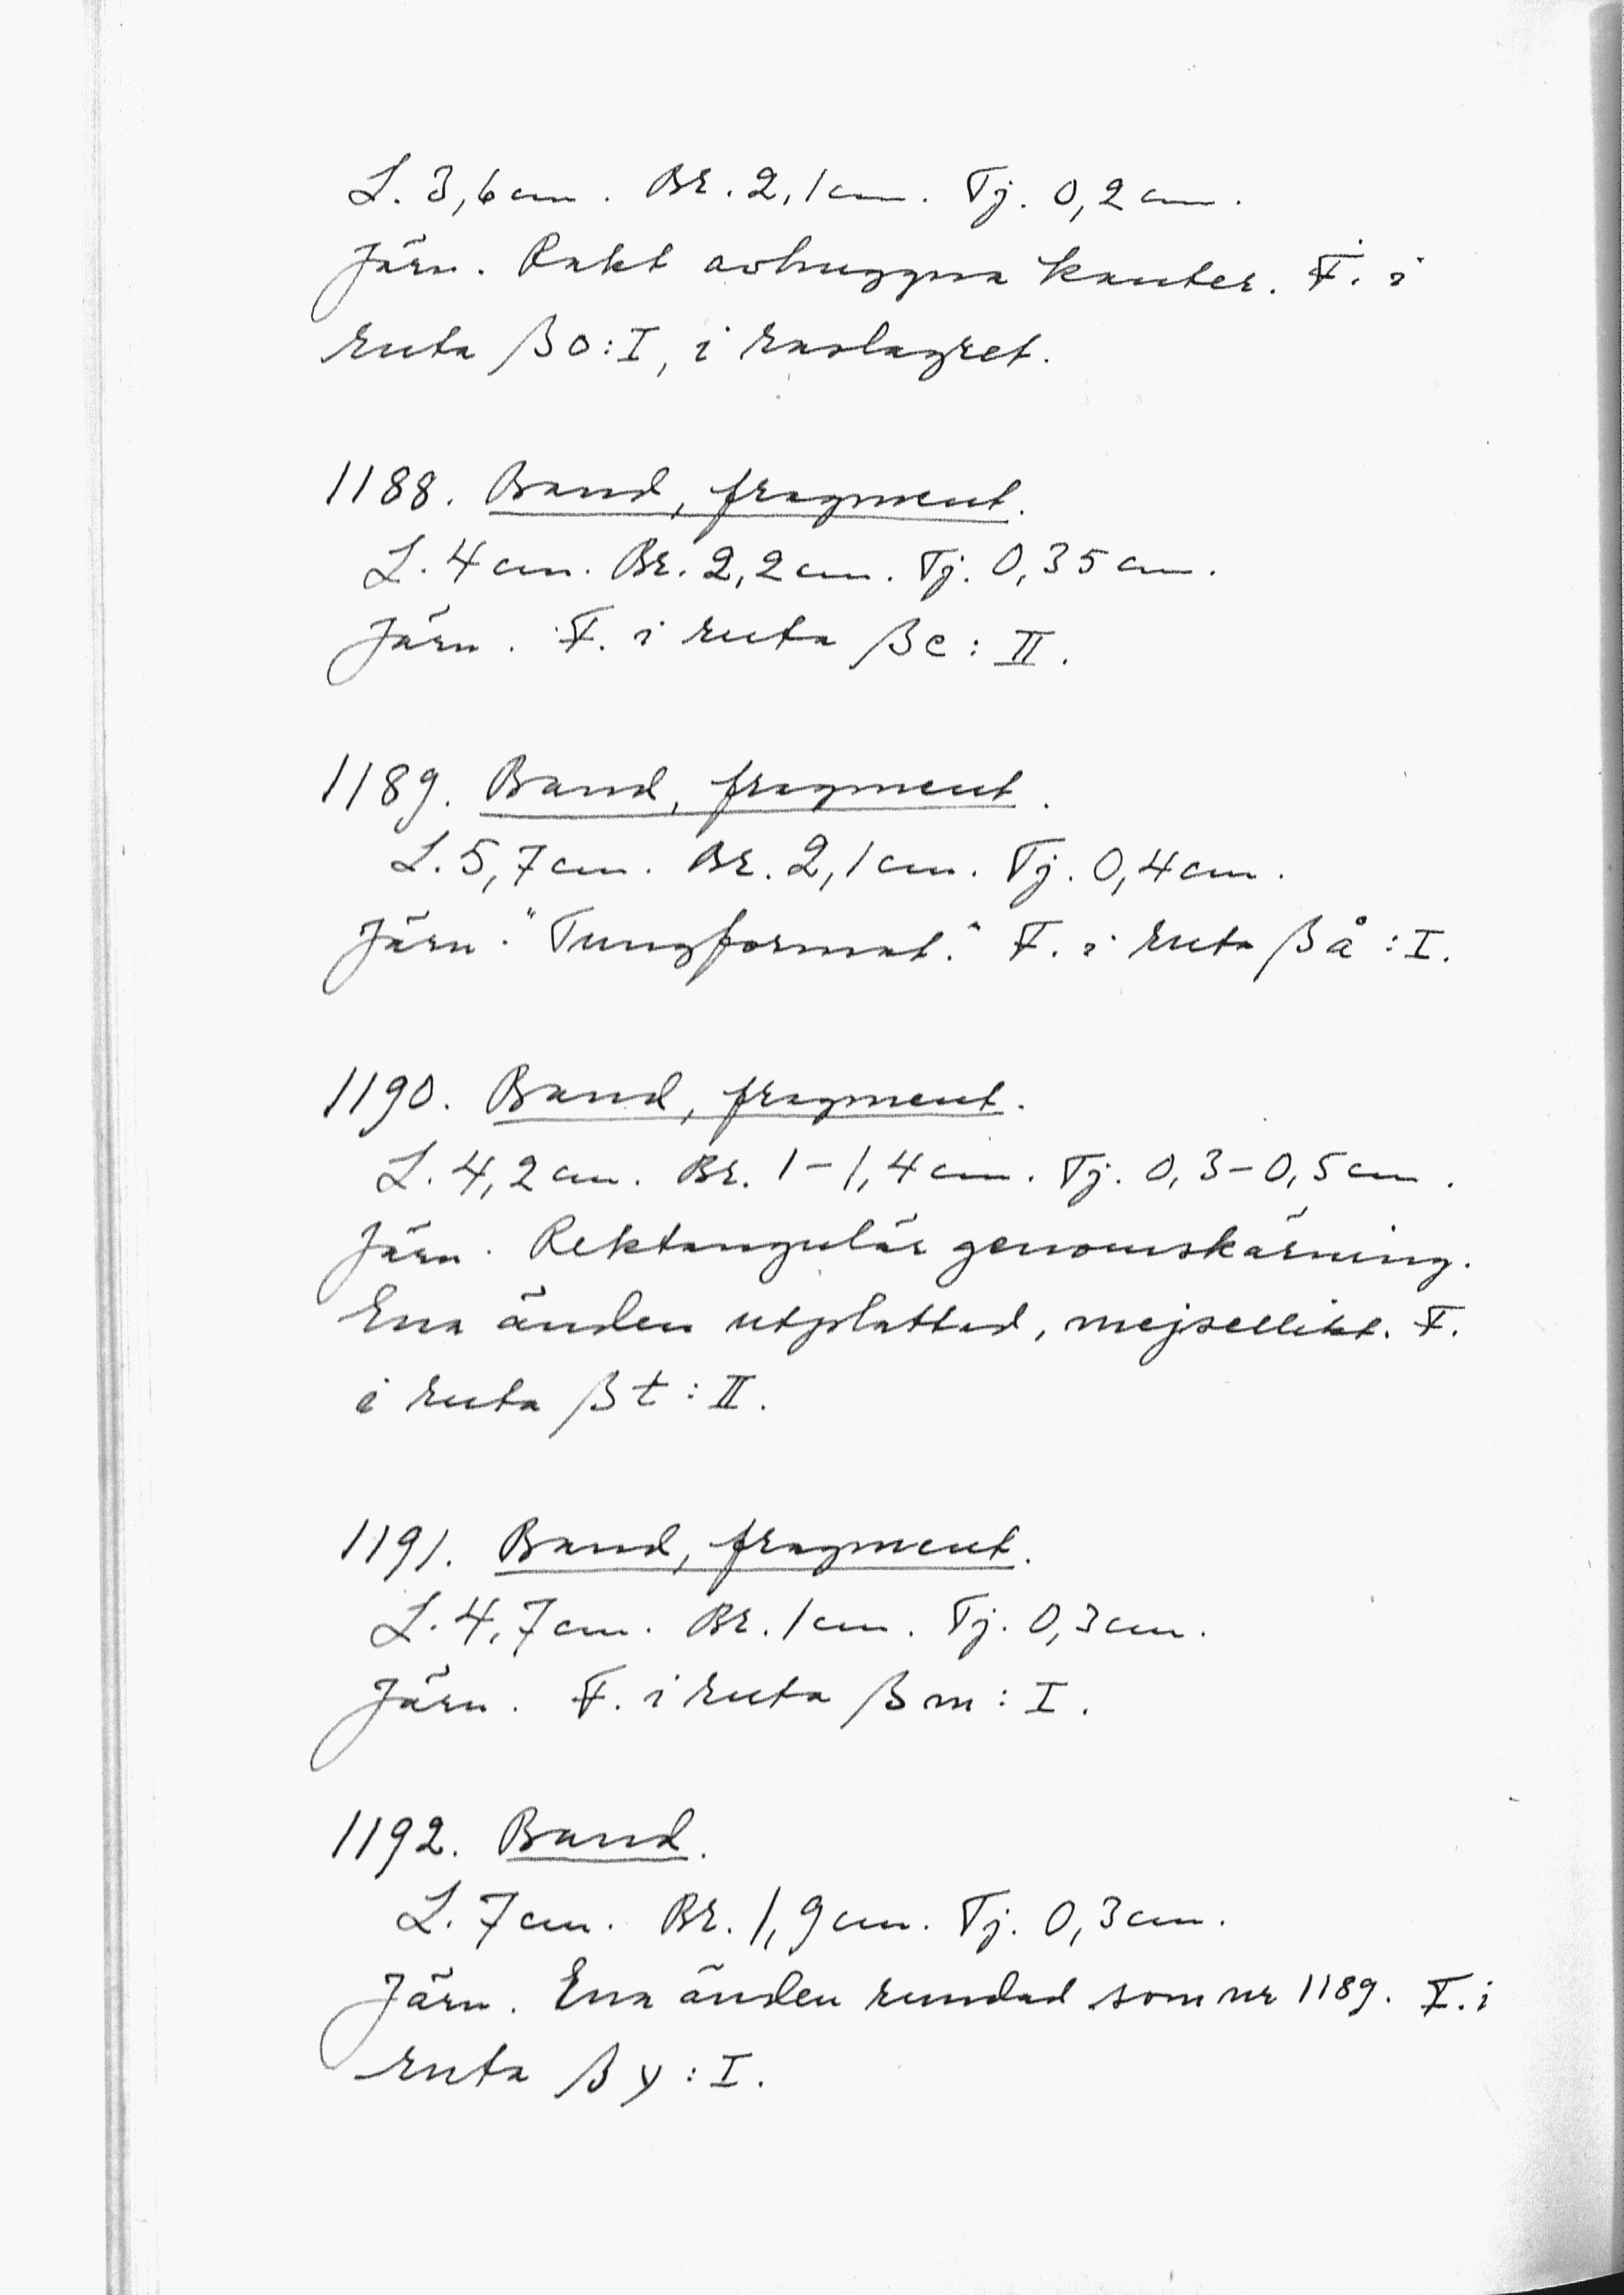 L. 3,6 cm. Br. 2,1 cm. Tj. 0,2 cm.
Järn. Rakt avhuggna kanter. F. i
ruta βo:I, i raslagret.
1188. Band, fragment.
L. 4 cm. Br. 2,2 cm. Tj. 0,35 cm.
Järn. F. i ruta βe:II.
1189. Band, fragment.
L. 5,7 cm. Br. 2,1 cm. Tj. 0,4 cm.
Järn. "Tungformat." F. i ruta βå:I.
1190. Band, fragment.
L. 4,2 cm. Br. 1-1,4 cm. Tj. 0,3-0,5 cm.
Järn. Rektangulär genomskärning.
Ena änden utplattad, mejsellikt. F.
i ruta βt:II.
1191. Band, fragment.
L. 4,7 cm. Br. 1 cm. Tj. 0,3 cm.
Järn. F. i ruta βm:I.
1192. Band.
L. 7 cm. Br. 1,9 cm. Tj. 0,3 cm.
Järn. Ena änden rundad som nr 1189. F. i
ruta βy:I.